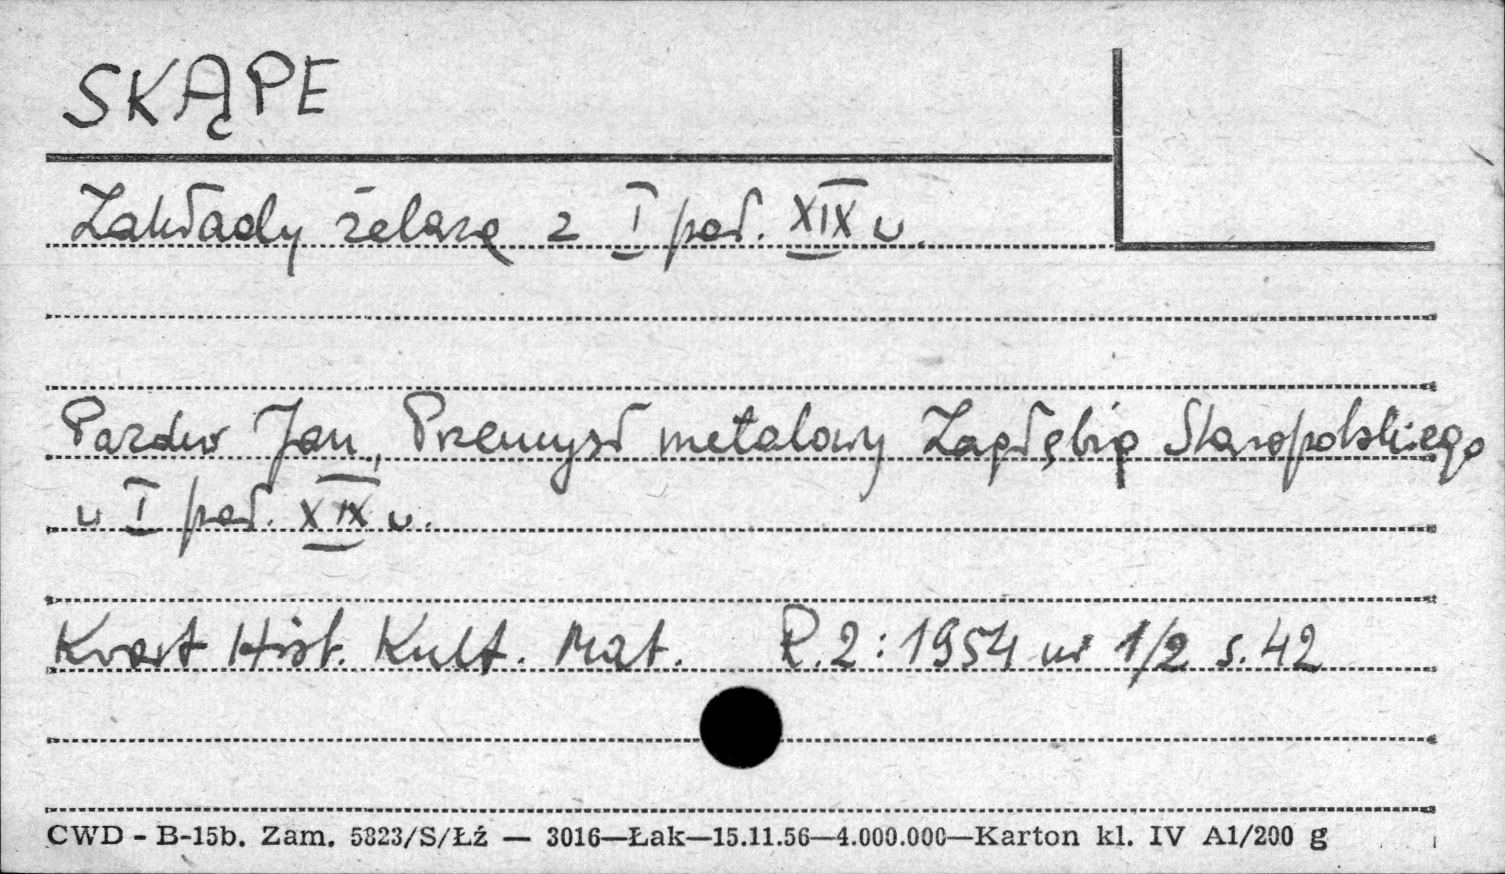 SKĄPE
Zakłady żelazne z I poł. XIX w.
Pazdur Jan, Przemysł metalowy Zagłębia Staropolskiego
w I poł. XIX w.
Kwart Hist. Kult. Mat. R.2: 1954 nr 1/2 s. 42
CWD - B-15b. Zam. 5823/S/Łź — 3016—Łak—15.11.56—4.000.000—Karton kl. IV A1/200 g